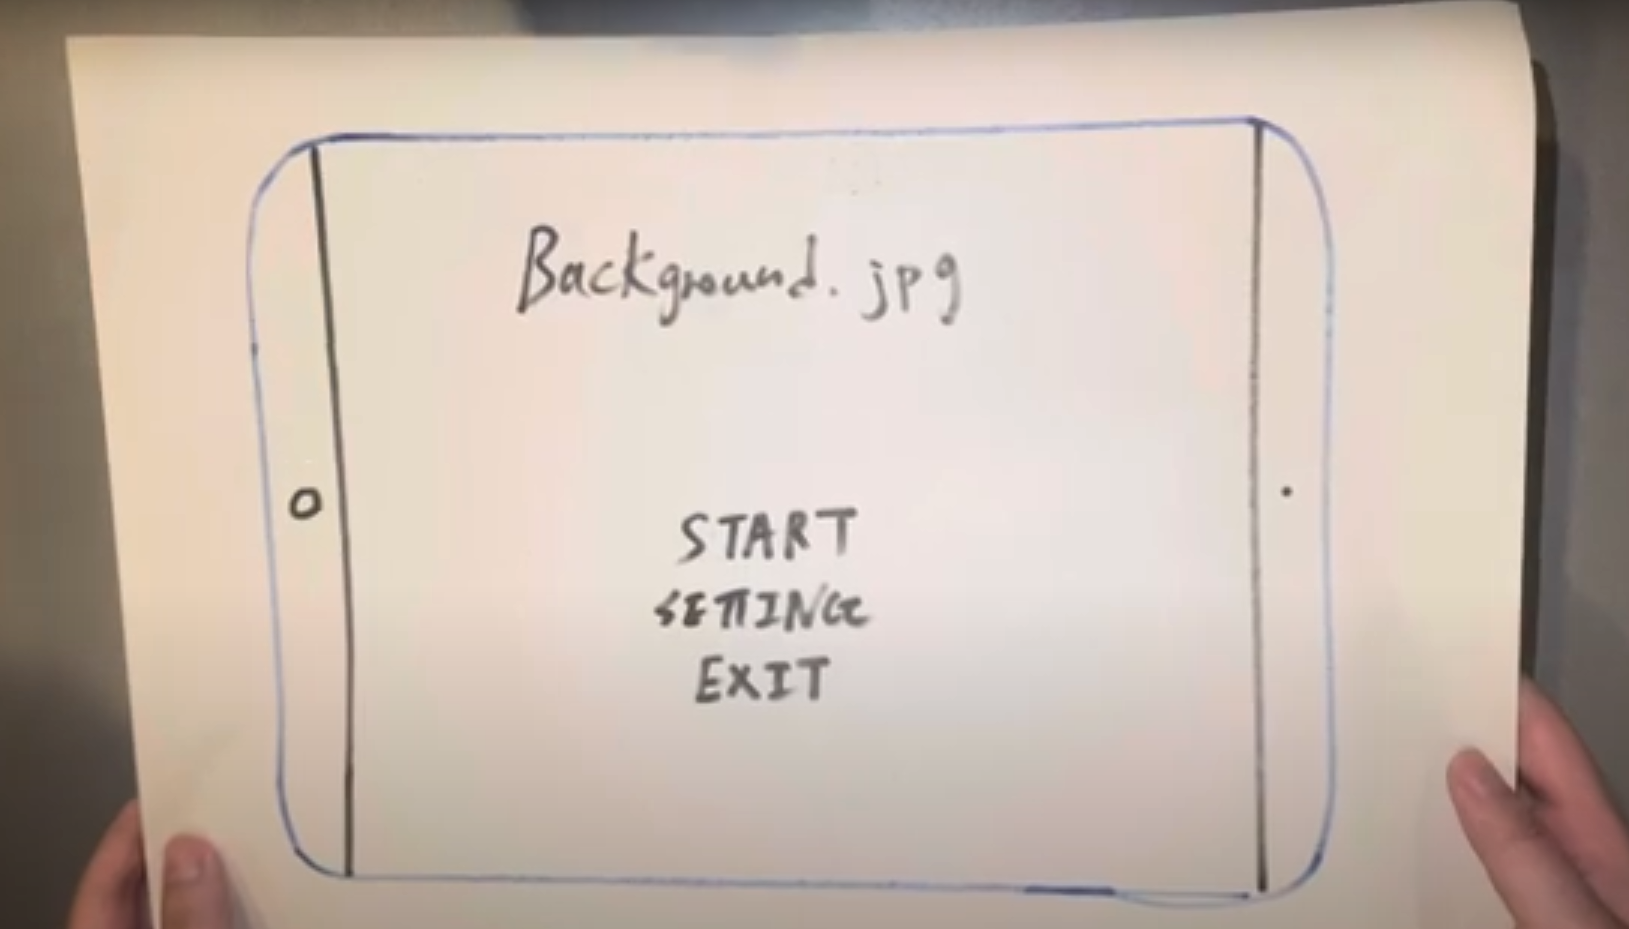 Background.jpg
START
SETTING
EXIT